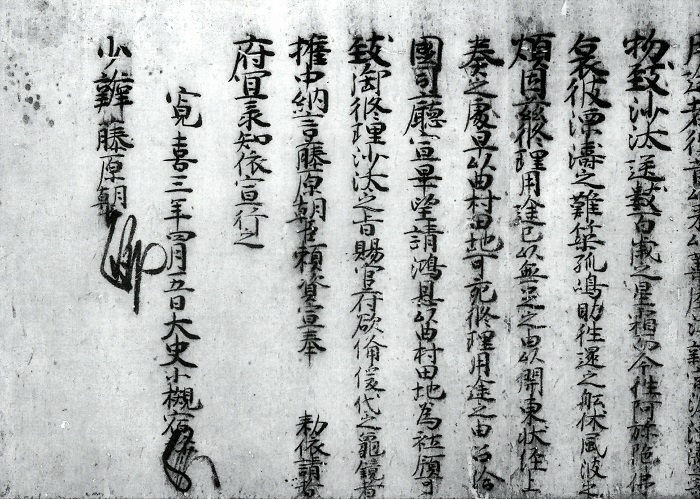 物致沙汰送数百歳之星霜而今往阿弥陀仏
哀彼漂濤之難築孤嶋助往還之舡休風波之
煩因茲修理用途已以無足之由以關東状経上
奏之處早以曲村田地可宛修理用途之由
國司廳宣畢望請鴻恩以曲村田地為社領可
致御修理沙汰之旨賜官府欲備後代之龜鏡者
權中納言藤原朝臣頼資宣奉 勅依請者
府宜承知依宣行之
寛喜三年四月五日大史小槻宿祢
少辨藤原朝臣